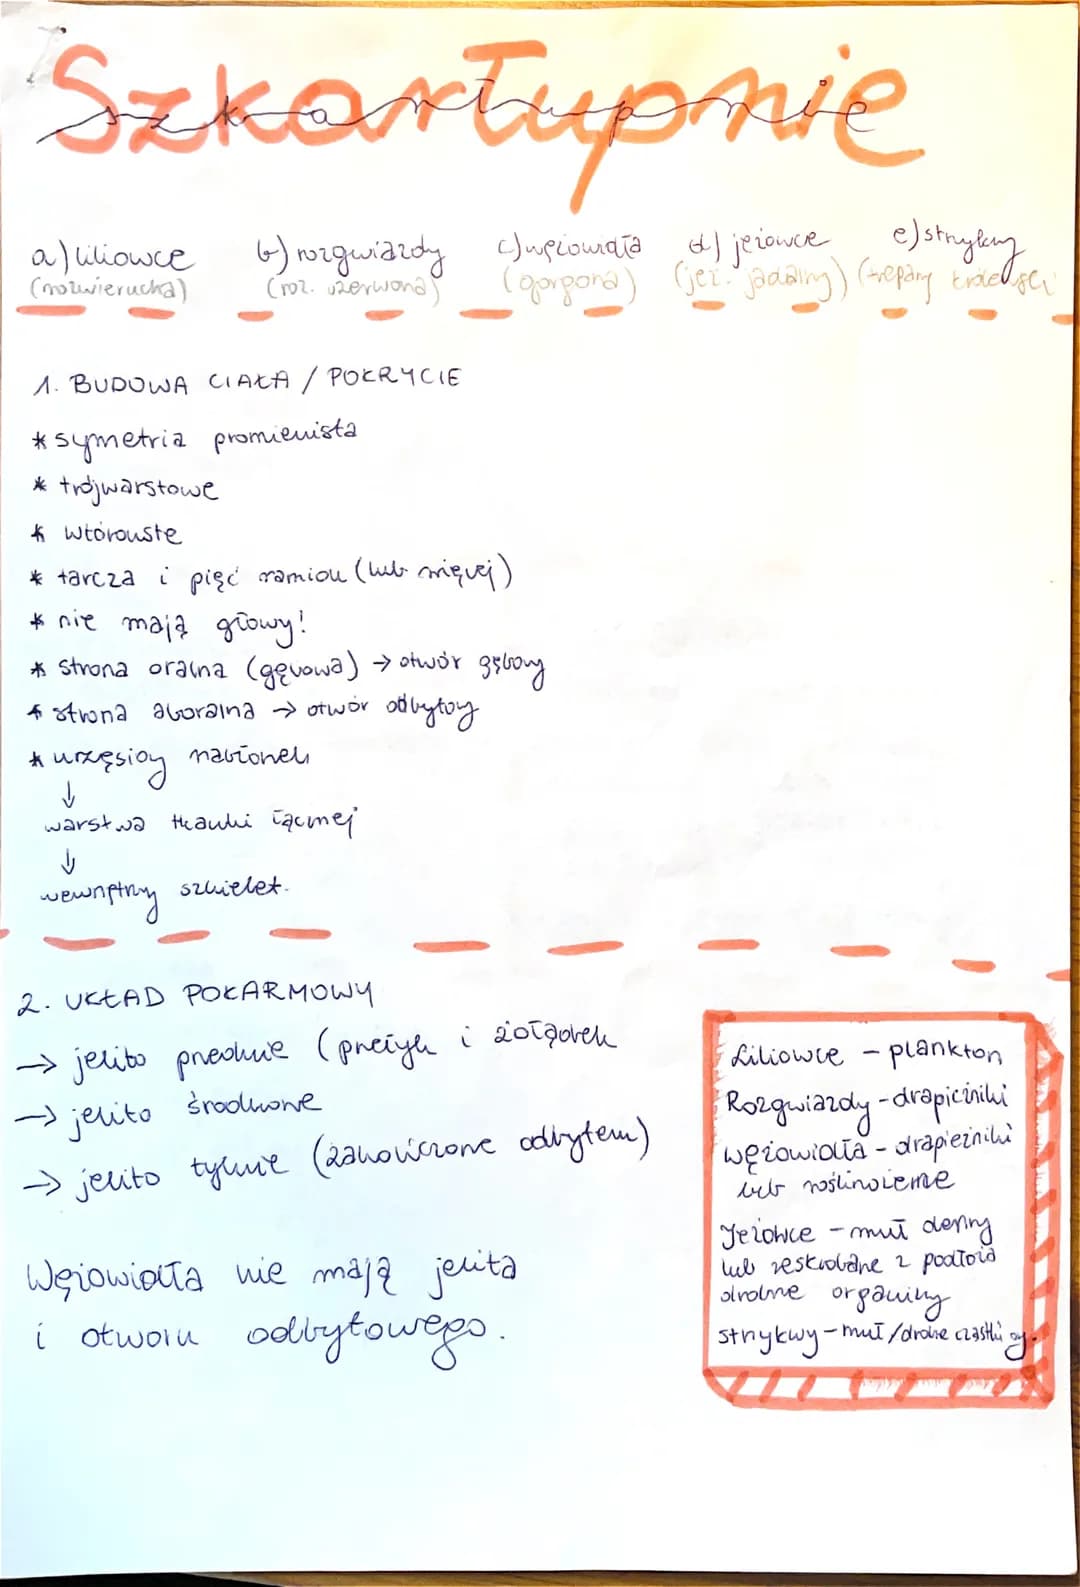 Szkarłupnie
a) liliowce b) rozgwiazdy c) wężowidła d) jeżowce e) strzykwy
(rozwierucha) (roz. czerwona) (gorgona) (jeż. jadalny) (trepang królewski
1. BUDOWA CIAŁA / POKRYCIE
* symetria promienista
* trójwarstowe
* wtórouste
* tarcza i pięć ramion (lub więcej)
* nie mają głowy!
* strona oralna (gębowa) → otwór gębowy
* strona aboralna → otwór odbytowy
* urzęsiony nabłonek
↓
warstwa tkanki łącznej
↓
wewnętrzny szkielet.
2. UKŁAD POKARMOWY
→ jelito przednie (przełyk i żołądek
→ jelito środkowe
→ jelito tylnie (zakończone odbytem)
Wężowidła nie mają jelita
i otworu odbytowego.
Liliowce – plankton
Rozgwiazdy – drapieżniki
wężowidła – drapieżniki
lub roślinożerne
Jeżowce – muł denny
lub zeskrobane z podłoża
drobne organizmy
strzykwy – muł / drobne cząstki